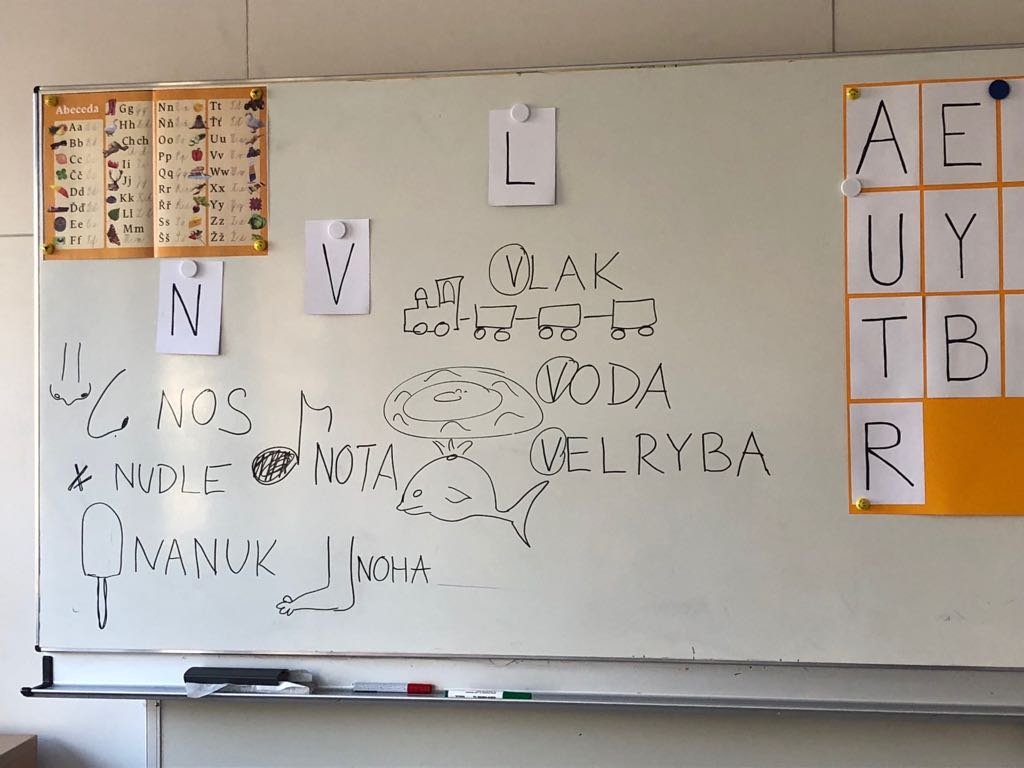 Abeceda
Aa
Bb
Cc
Čč
Dd
Ďď
Ee
Ff
Gg
Hh
Ch ch
Ii
Jj
Kk
Ll
Mm
Nn
Ňň
Oo
Pp
Qq
Rr
Řř
Ss
Šš
Tt
Ťť
Uu
Vv
Ww
Xx
Yy
Zz
Žž
N
V
L
VLAK
VODA
VELRYBA
NOS
NOTA
NUDLE
NANUK
NOHA
A E
U Y
T B
R